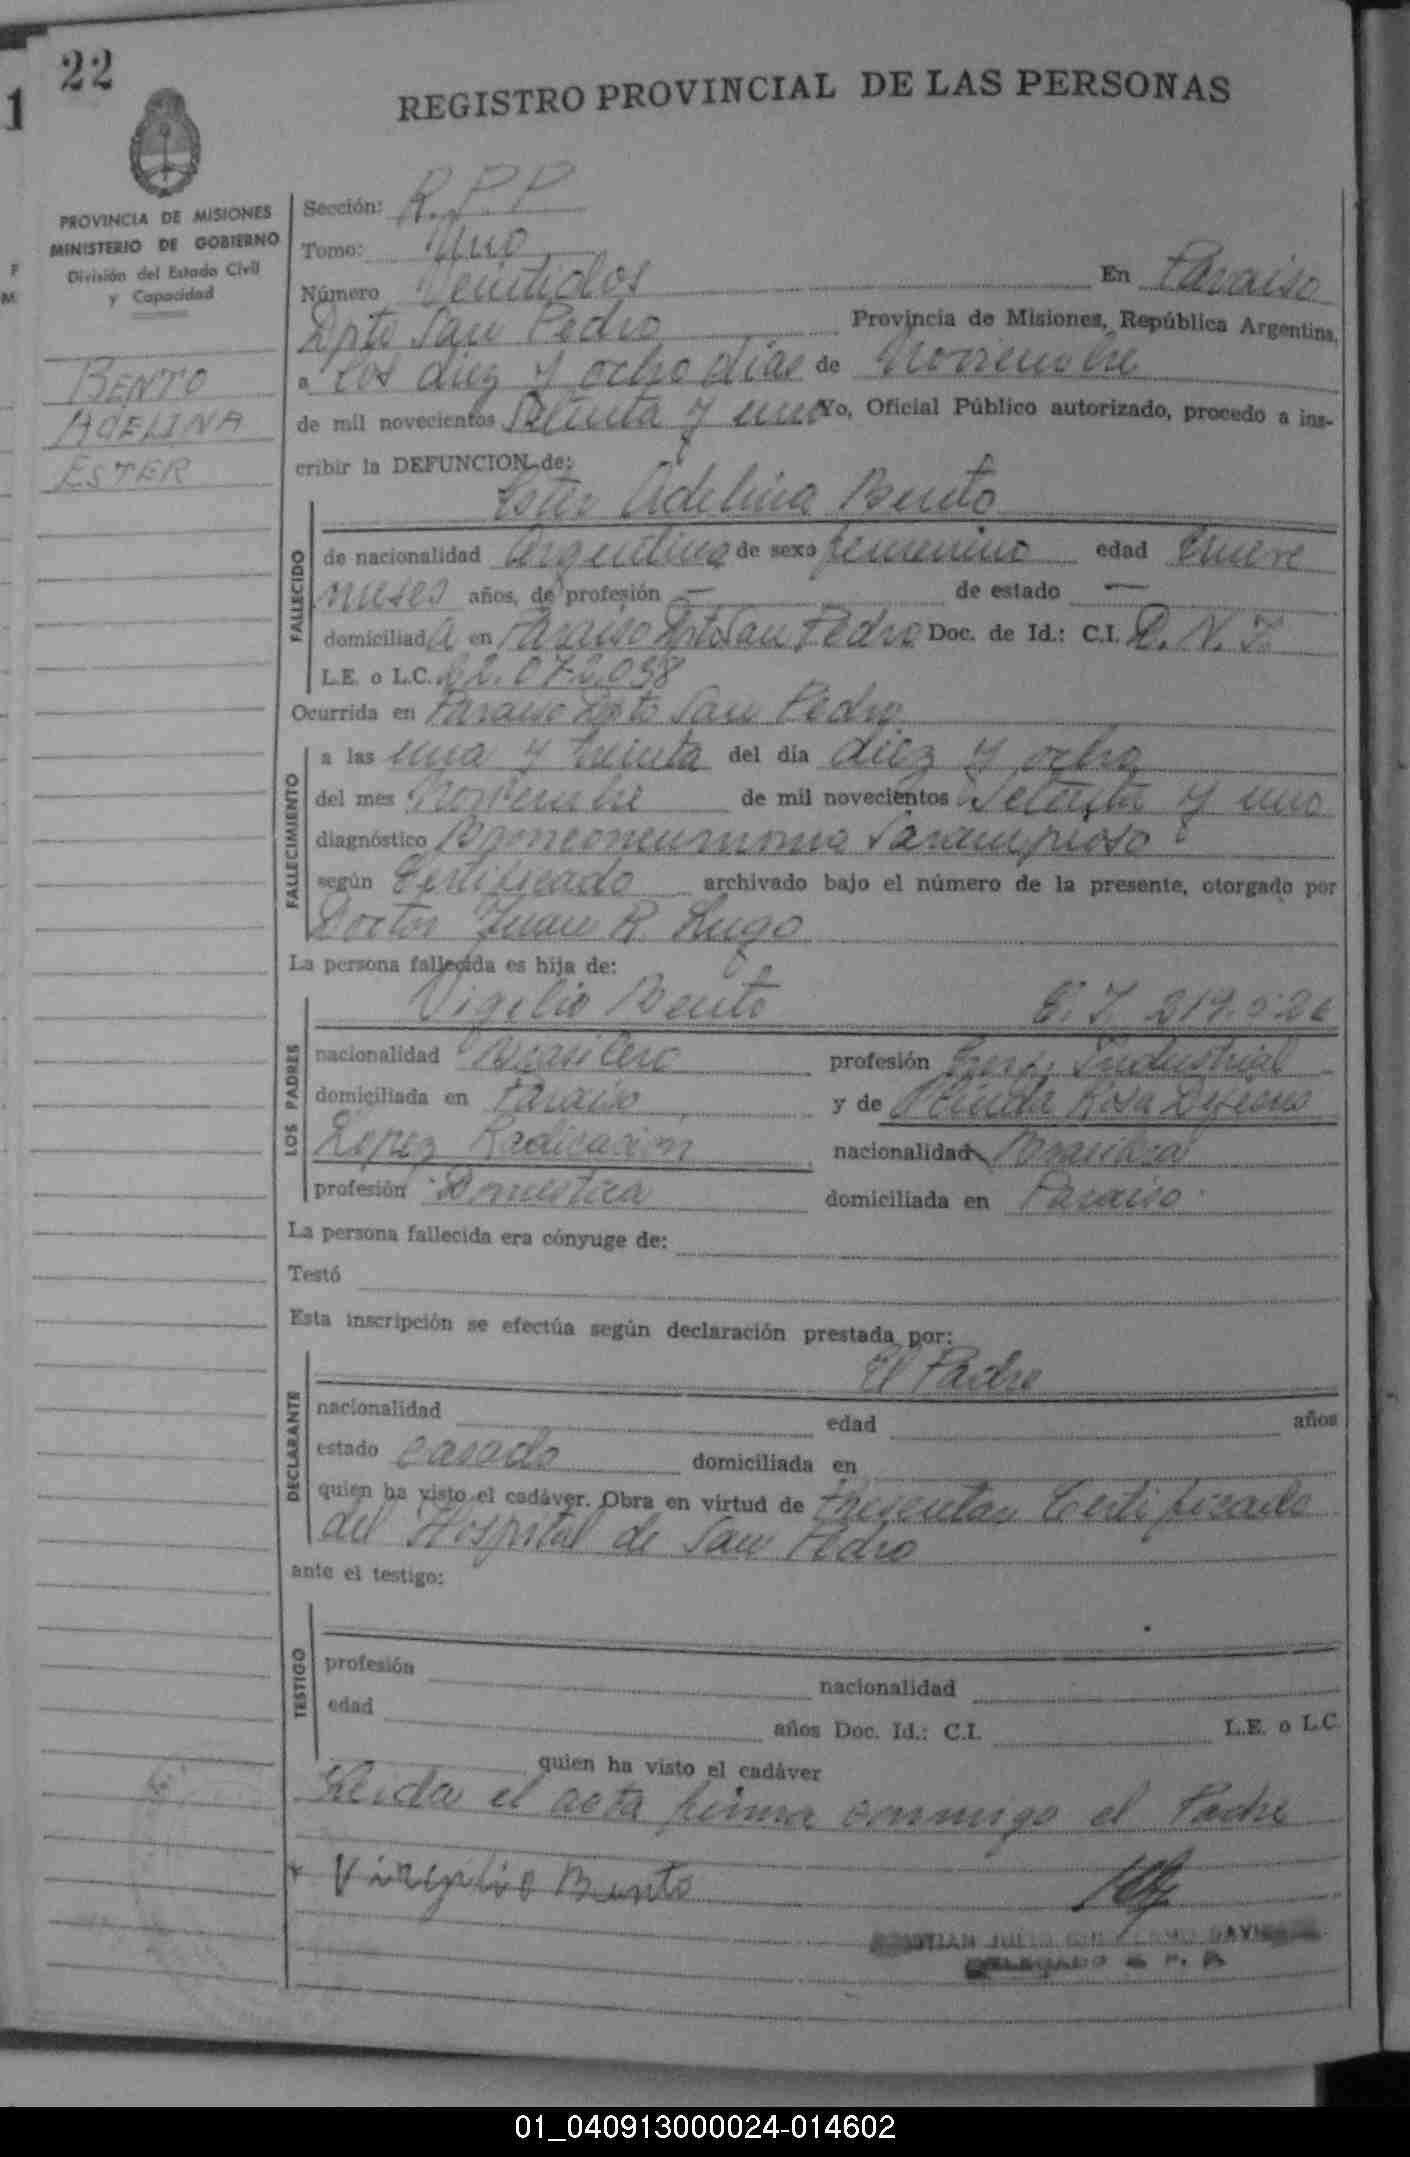 22
1
REGISTRO PROVINCIAL DE LAS PERSONAS
PROVINCIA DE MISIONES
MINISTERIO DE GOBIERNO
División del Estado Civil
y Capacidad
BENTO
ADELINA
ESTER
Sección: R.P.P
Tomo: Uno
Número Veintidos En Paraiso
Dpto San Pedro Provincia de Misiones, República Argentina,
a los diez y ocho dias de Noviembre
de mil novecientos Setenta y uno Yo, Oficial Público autorizado, procedo a ins-
cribir la DEFUNCION de:
Ester Adelina Bento
FALLECIDO
de nacionalidad Argentina de sexo femenino edad
meses años, de profesión — de estado —
domiciliada en Paraiso Dpto San Pedro Doc. de Id.: C.I. D.N.I.
L.E. o L.C. 22.072.038
Ocurrida en Paraiso Dpto San Pedro
FALLECIMIENTO
a las una y treinta del día diez y ocho
del mes Noviembre de mil novecientos Setenta y uno
diagnóstico Sarampioso
según Certificado archivado bajo el número de la presente, otorgado por
Doctor Juan R. Lugo
La persona fallecida es hija de:
Vigilio Bento C.I. 219.526
LOS PADRES
nacionalidad Brasilero profesión Industrial
domiciliada en Paraiso y de Olinda Rosa Dejesus
Lopez Radicacion nacionalidad Brasilera
profesión Domestica domiciliada en Paraiso
La persona fallecida era cónyuge de:
Testó
Esta inscripción se efectúa según declaración prestada por:
El Padre
DECLARANTE
nacionalidad edad años
estado casado domiciliada en
quien ha visto el cadáver. Obra en virtud de Presentar Certificado
del Hospital de San Pedro
ante el testigo:
TESTIGO
profesión nacionalidad
edad años Doc. Id.: C.I. L.E. o L.C.
quien ha visto el cadáver
Leida el acta firma conmigo el Padre
x Virgilio Bento
DELEGADO R. P. P.
01_040913000024-014602